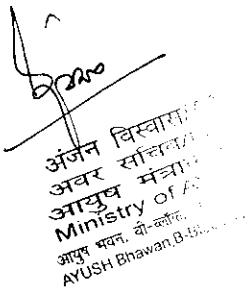 अंजन विस्वास
अवर सचिव/
आयुष मंत्रा
Ministry of A
आयुष भवन, बी-ब्लॉक,
AYUSH Bhawan, B-Bl